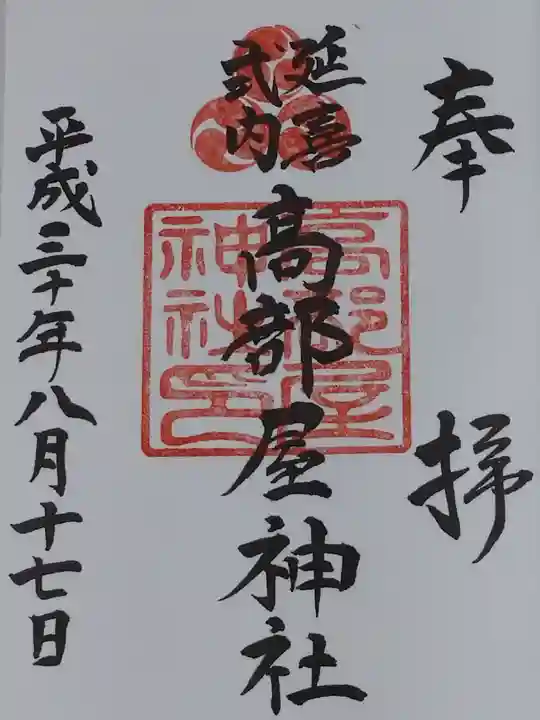 奉拝
延喜
式内
高部屋神社
高部屋
神社印
平成三十年八月十七日